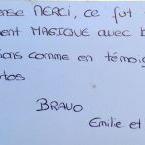 ense MERCI, ce fut
ent MAGIQUE avec b
ions comme en témoig
tos
BRAVO
Emilie et